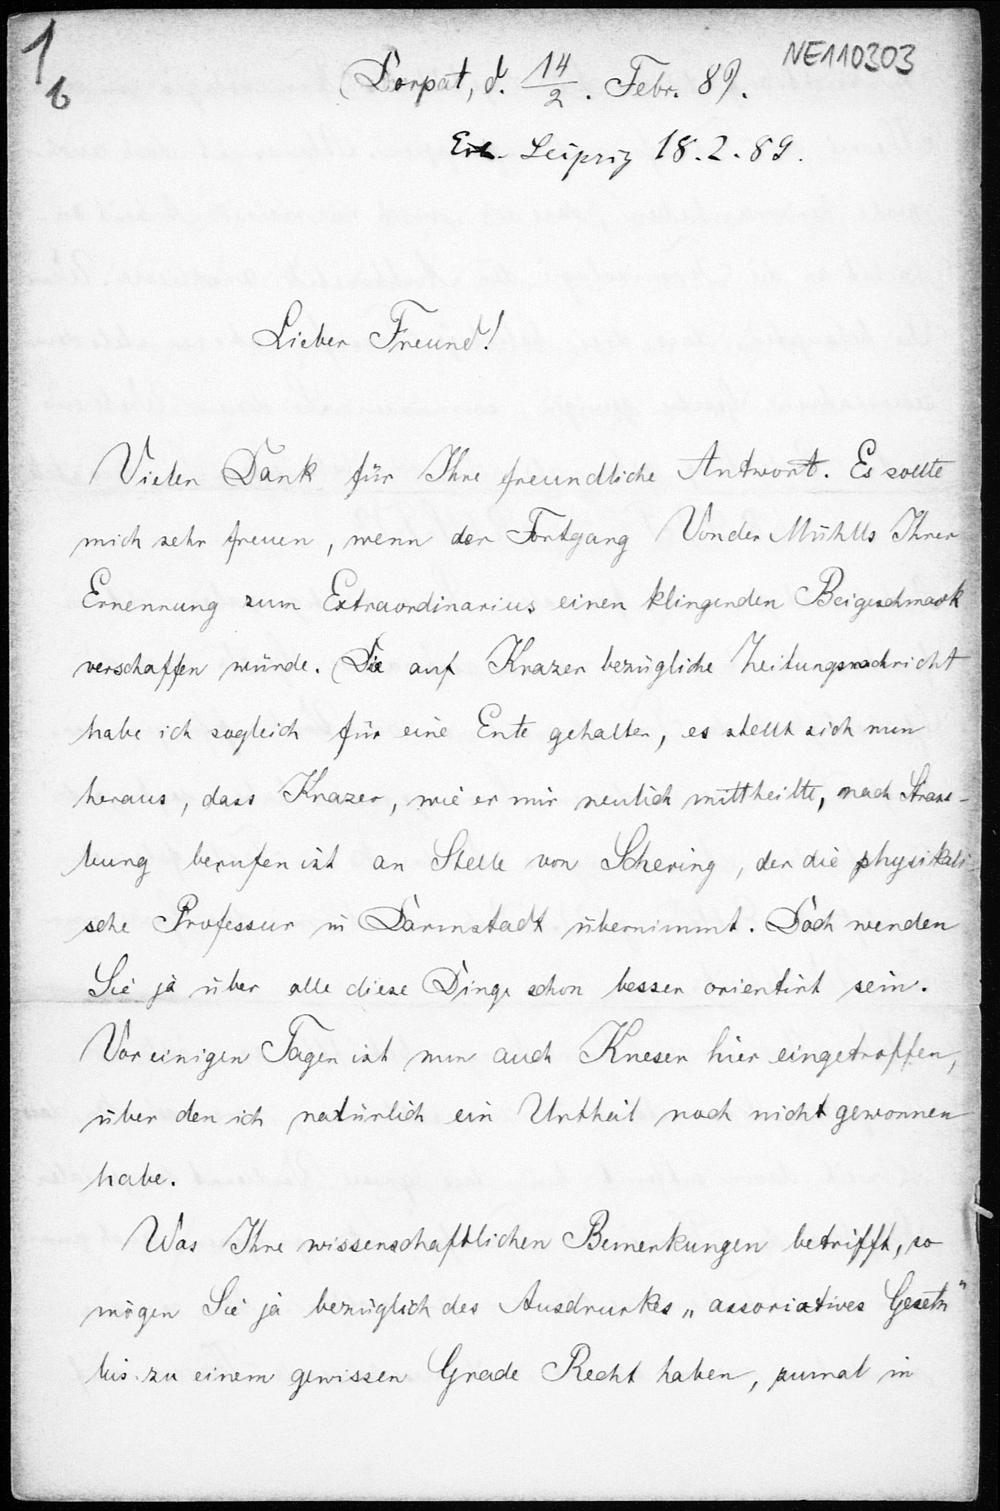 1
6
NE110303
Dorpat, d. 14/2. Febr. 89.
Erh. Leipzig 18.2.89.
Lieber Freund!
Vielen Dank für Ihre freundliche Antwort. Es sollte
mich sehr freuen, wenn der Fortgang VonderMühlls Ihrer
Ernennung zum Extraordinarius einen klingenden Beigeschmack
verschaffen würde. Die auf Krazer bezügliche Zeitungsnachricht
habe ich sogleich für eine Ente gehalten, es stellt sich nun
heraus, dass Krazer, wie er mir neulich mittheilte, nach Strass-
burg berufen ist an Stelle von Schering, der die physikali-
sche Professur in Darmstadt übernimmt. Doch werden
Sie ja über alle diese Dinge schon besser orientirt sein.
Vor einigen Tagen ist nun auch Kneser hier eingetroffen,
über den ich natürlich ein Urtheil noch nicht gewonnen
habe.
Was Ihre wissenschaftlichen Bemerkungen betrifft, so
mögen Sie ja bezüglich des Ausdruckes „associatives Gesetz"
bis zu einem gewissen Grade Recht haben, zumal in